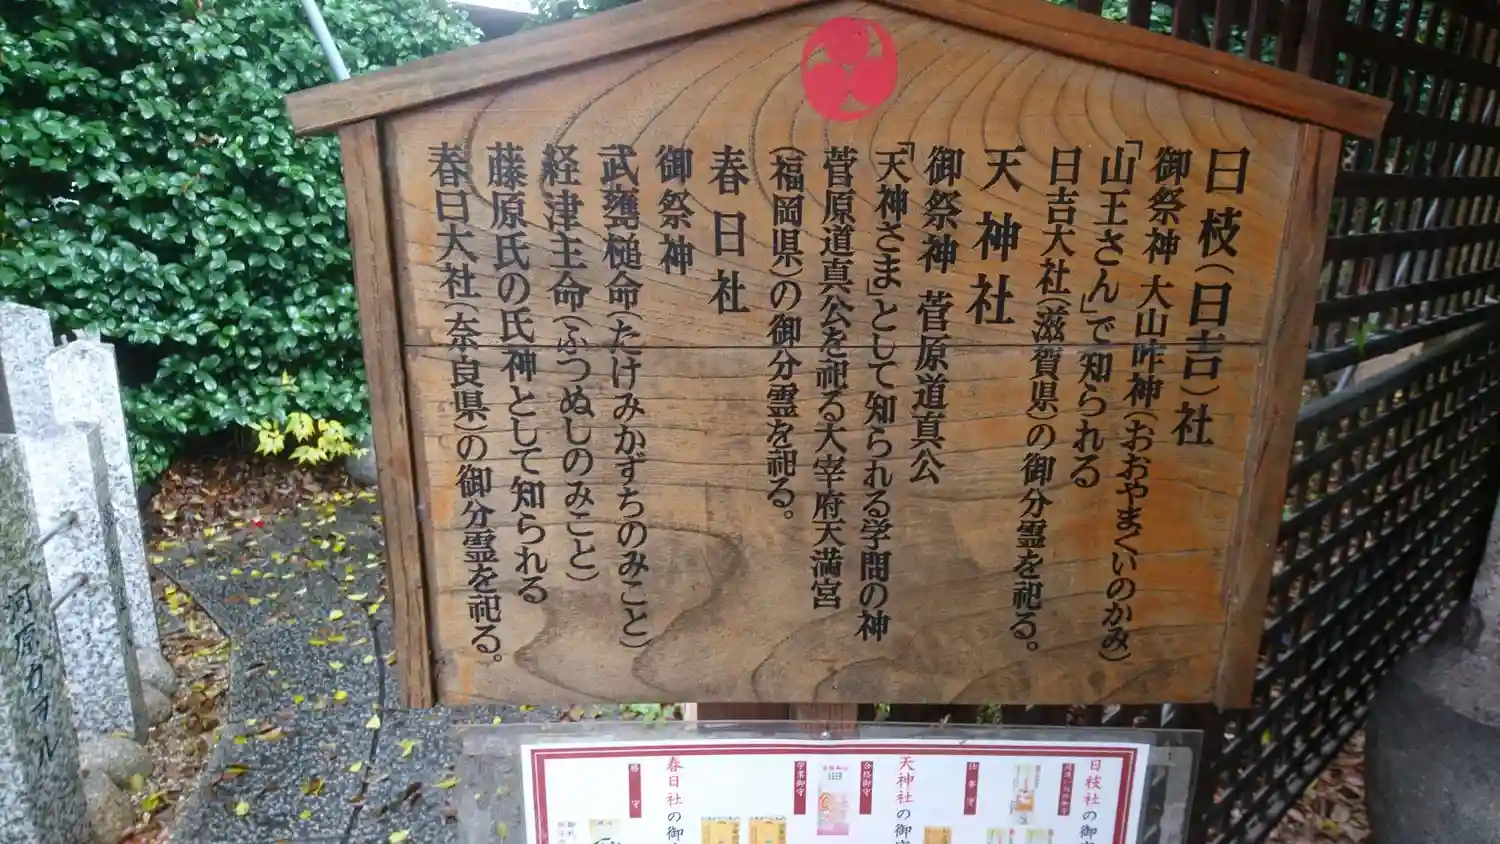 日枝(日吉)社
御祭神 大山咋神(おおやまくいのかみ)
「山王さん」で知られる
日吉大社(滋賀県)の御分霊を祀る。
天神社
御祭神 菅原道真公
「天神さま」として知られる学問の神
菅原道真公を祀る大宰府天満宮
(福岡県)の御分霊を祀る。
春日社
御祭神
武甕槌命(たけみかずちのみこと)
経津主命(ふつぬしのみこと)
藤原氏の氏神として知られる
春日大社(奈良県)の御分霊を祀る。
日枝社の御
仕事守
天神社の御
合格御守
学業御守
春日社の御
勝守